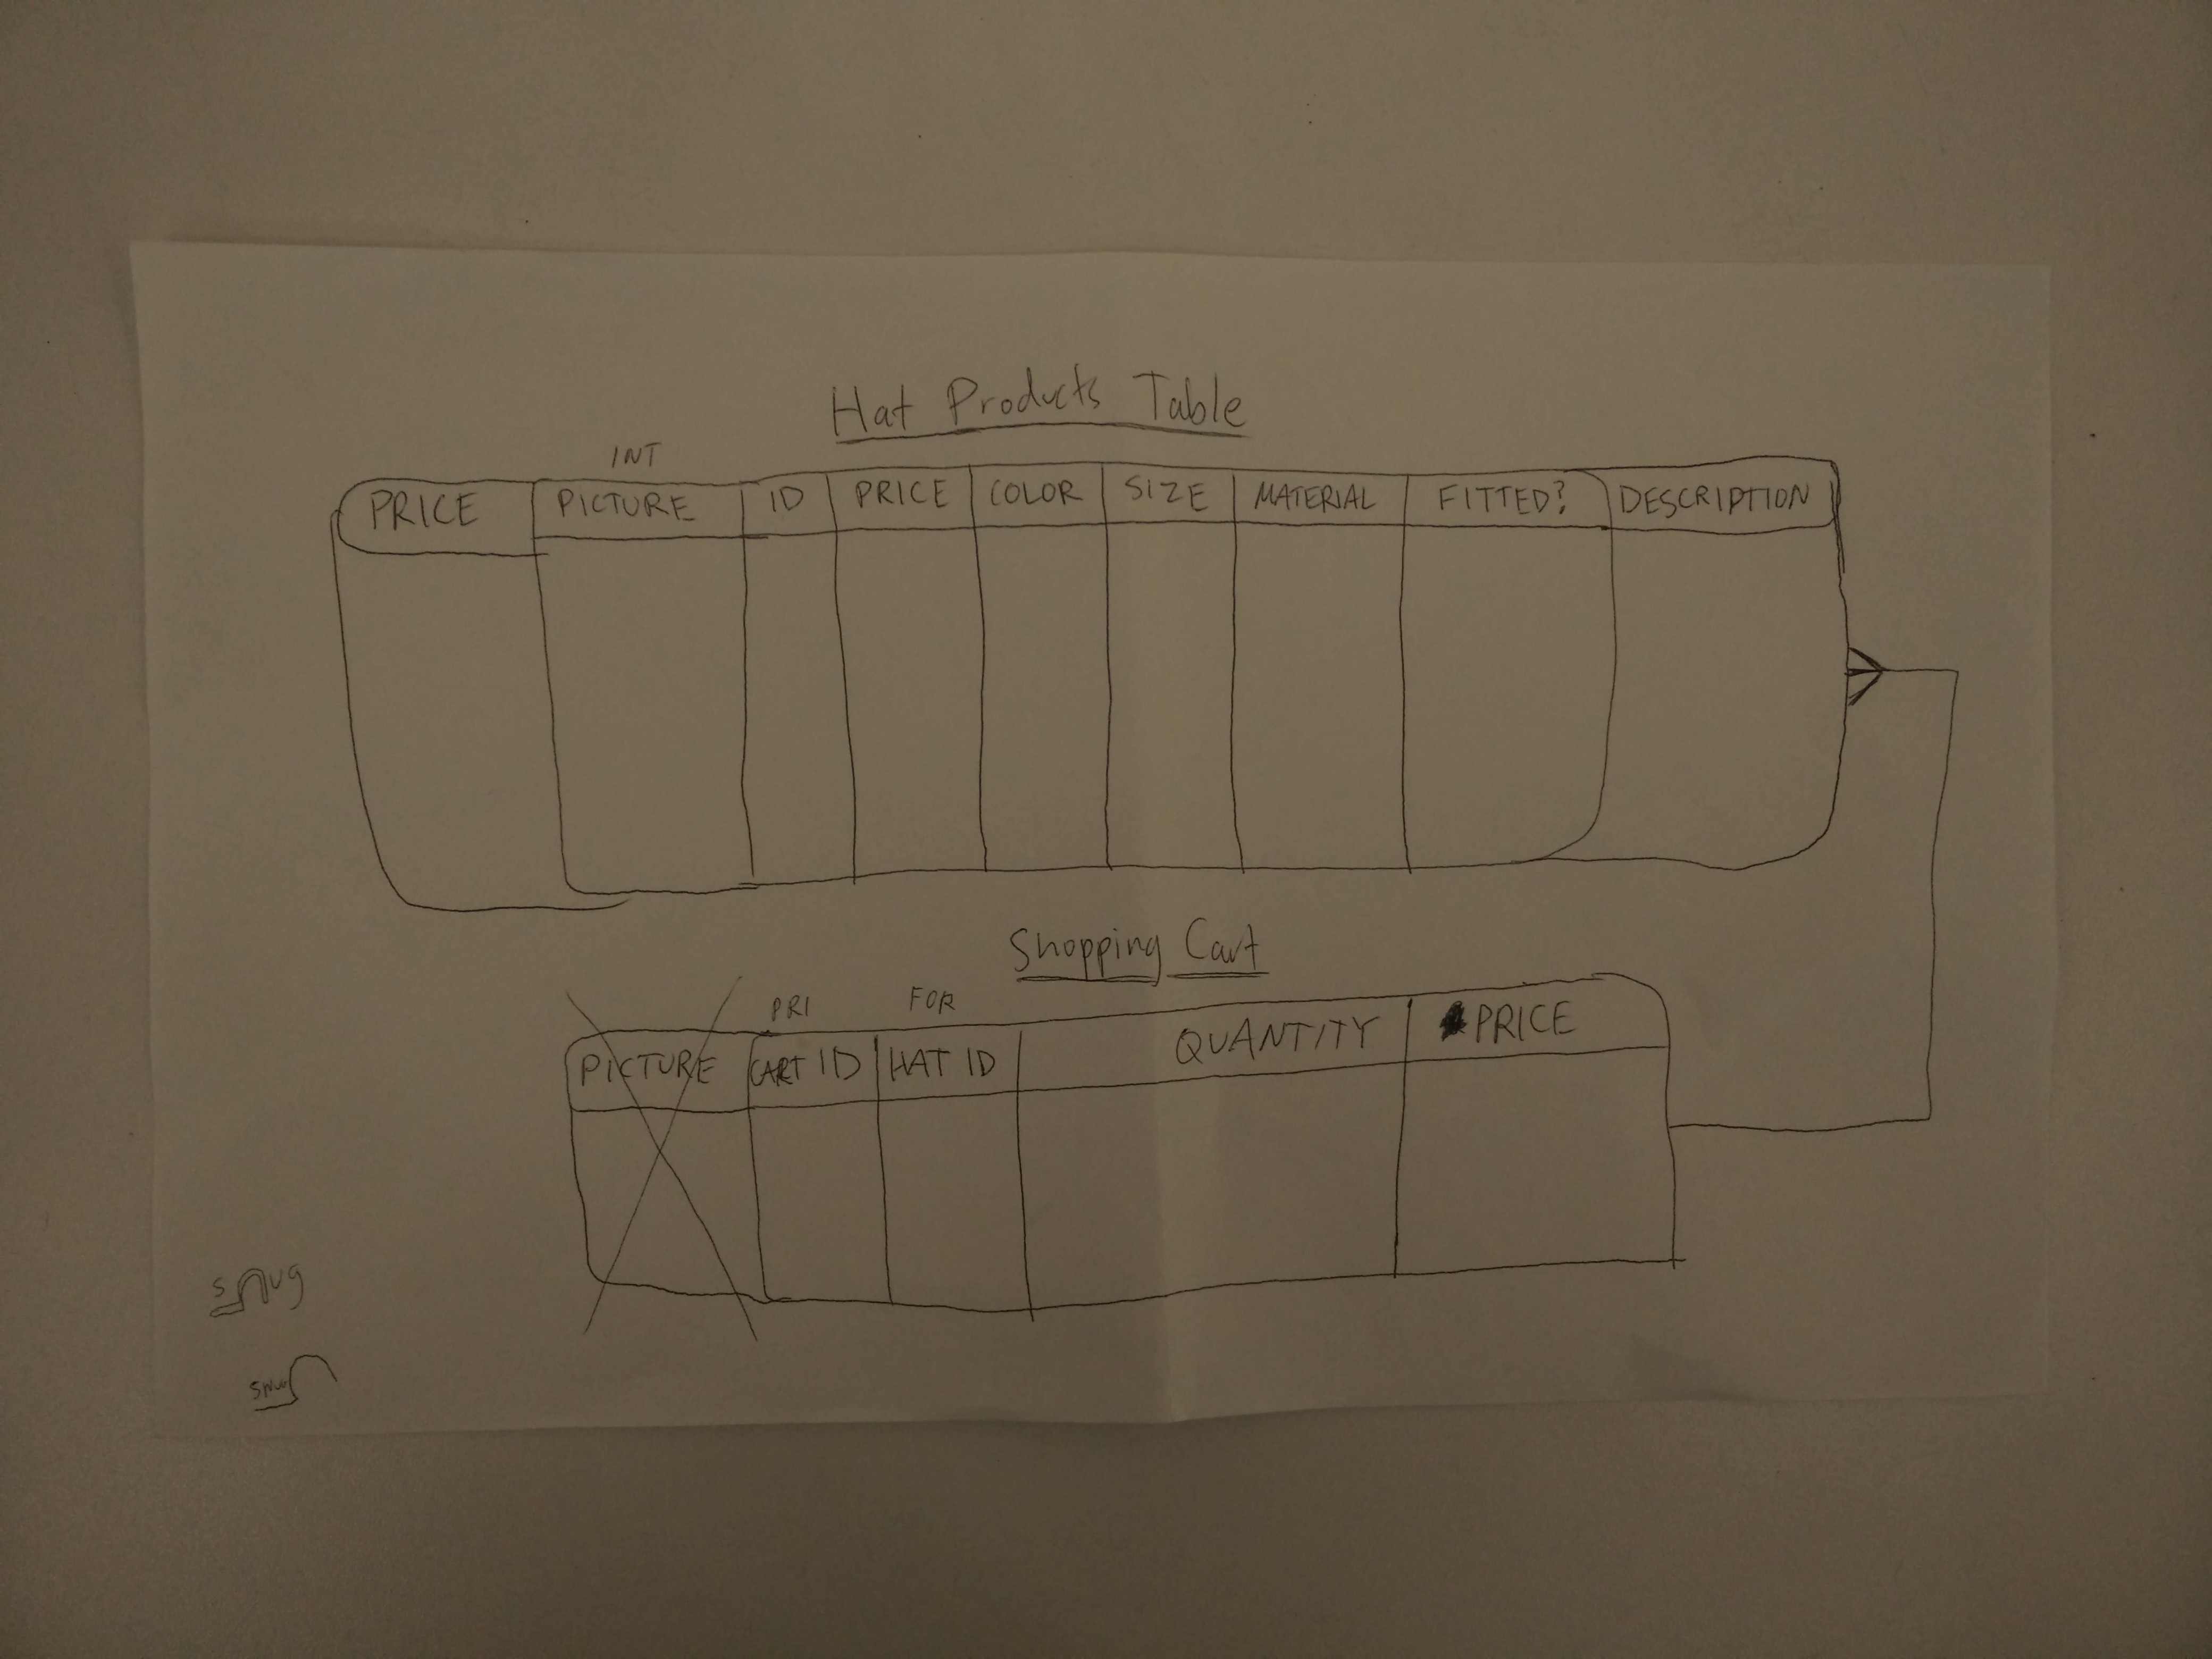 Hat Products Table
INT
PRICE PICTURE ID PRICE COLOR SIZE MATERIAL FITTED? DESCRIPTION
Shopping Cart
PRI FOR
PICTURE CART ID HAT ID QUANTITY PRICE
snug
snug